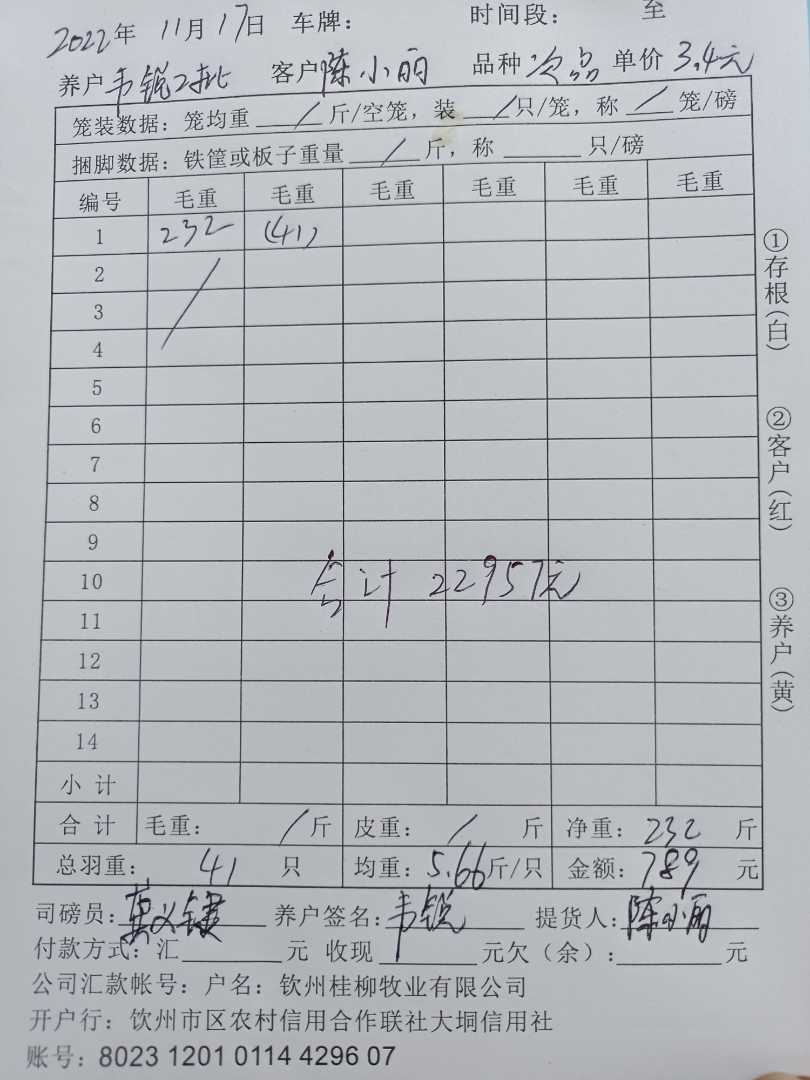 2022年 11月17日 车牌： 时间段： 至
养户 韦锐2批 客户 陈小丽 品种 次品 单价 3.4元
笼装数据：笼均重 / 斤/空笼，装 / 只/笼，称 / 笼/磅
捆脚数据：铁筐或板子重量 / 斤，称 只/磅
编号 毛重 毛重 毛重 毛重 毛重 毛重
1 232 (41)
2
3
4
5
6
7
8
9
10 合计 22957元
11
12
13
14
小计
合计 毛重： / 斤 皮重： / 斤 净重：232 斤
总羽重： 41 只 均重：5.66斤/只 金额：789 元
司磅员： 养户签名：韦锐 提货人：陈小丽
付款方式：汇 元 收现 元欠（余）： 元
公司汇款帐号：户名：钦州桂柳牧业有限公司
开户行：钦州市区农村信用合作联社大垌信用社
账号：8023 1201 0114 4296 07
①存根(白)
②客户(红)
③养户(黄)